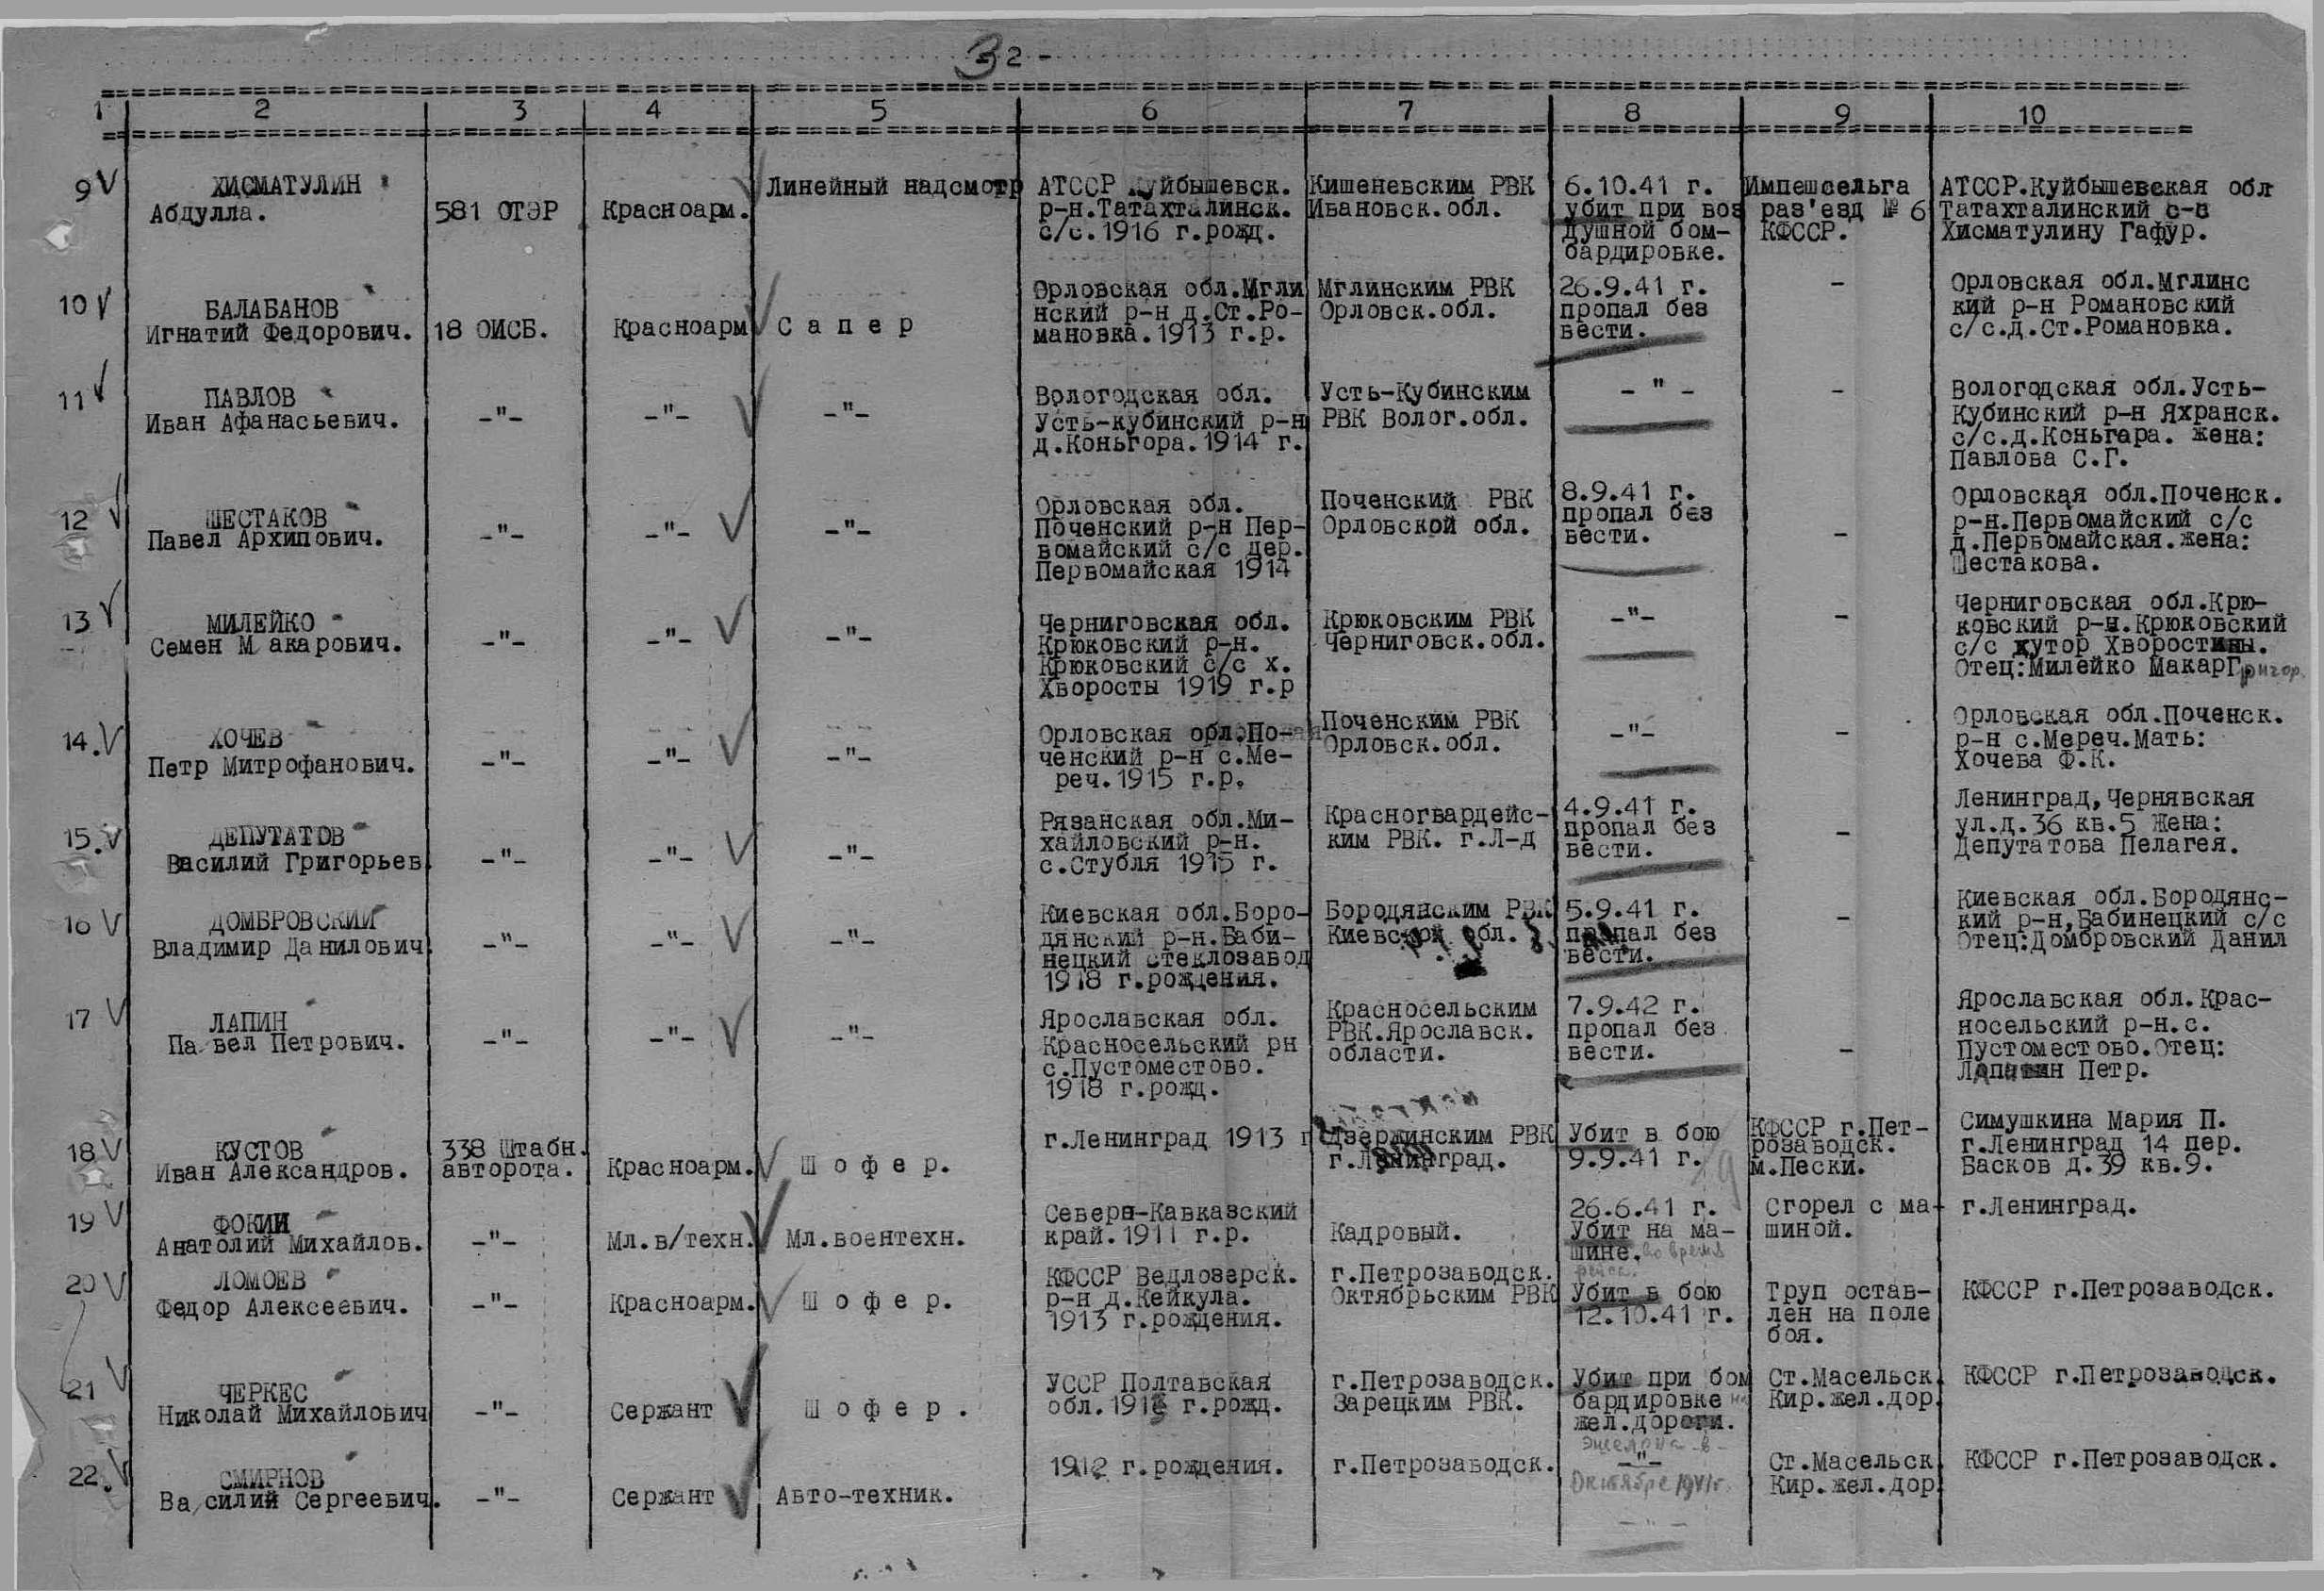 3 2 -
1 2 3 4 5 6 7 8 9 10
9 V
ХИСМАТУЛИН
Абдулла.
581 ОТЭР
Красноарм.
Линейный надсмотр
АТССР Куйбышевск.
р-н.Татахталинск.
с/с.1916 г.рожд.
Кишеневским РВК
Ивановск.обл.
6.10.41 г.
убит при воз
душной бом-
бардировке.
Импешсельга
раз'езд № 6
КФССР.
АТССР.Куйбышевская обл
Татахталинский с-с
Хисматулину Гафур.
10 V
БАЛАБАНОВ
Игнатий Федорович.
18 ОИСБ.
Красноарм
С а п е р
Орловская обл.Мгли
нский р-н д.Ст.Ро-
мановка.1913 г.р.
Мглинским РВК
Орловск.обл.
26.9.41 г.
пропал без
вести.
-
Орловская обл.Мглинс
кий р-н Романовский
с/с.д.Ст.Романовка.
11 V
ПАВЛОВ
Иван Афанасьевич.
-"-
-"-
-"-
Вологодская обл.
Усть-кубинский р-н
д.Коньгора.1914 г.
Усть-Кубинским
РВК Волог.обл.
- " -
-
Вологодская обл.Усть-
Кубинский р-н Яхранск.
с/с.д.Коньгара. жена:
Павлова С.Г.
12 V
ШЕСТАКОВ
Павел Архипович.
-"-
-"-
-"-
Орловская обл.
Поченский р-н Пер-
вомайский с/с дер.
Первомайская 1914
Поченский РВК
Орловской обл.
8.9.41 г.
пропал без
вести.
-
Орловская обл.Поченск.
р-н.Первомайский с/с
д.Первомайская.жена:
Шестакова.
13 V
МИЛЕЙКО
Семен Макарович.
-"-
-"-
-"-
Черниговская обл.
Крюковский р-н.
Крюковский с/с х.
Хворосты 1919 г.р
Крюковским РВК
Черниговск.обл.
-"-
-
Черниговская обл.Крю-
ковский р-н.Крюковский
с/с хутор Хворостины.
Отец:Милейко Макар Григор.
14.V
ХОЧЕВ
Петр Митрофанович.
-"-
-"-
-"-
Орловская орл.По-
ченский р-н с.Ме-
реч.1915 г.р.
Поченским РВК
Орловск.обл.
-"-
-
Орловская обл.Поченск.
р-н с.Мереч.Мать:
Хочева Ф.К.
15.V
ДЕПУТАТОВ
Василий Григорьев.
-"-
-"-
-"-
Рязанская обл.Ми-
хайловский р-н.
с.Стубля 1915 г.
Красногвардейс-
ким РВК. г.Л-д
4.9.41 г.
пропал без
вести.
-
Ленинград,Чернявская
ул.д.36 кв.5 Жена:
Депутатова Пелагея.
16 V
ДОМБРОВСКИЙ
Владимир Данилович.
-"-
-"-
-"-
Киевская обл.Боро-
дянский р-н.Баби-
нецкий стеклозавод
1918 г.рождения.
Бородянским РВК
Киевской обл.
5.9.41 г.
пропал без
вести.
-
Киевская обл.Бородянс-
кий р-н,Бабинецкий с/с
Отец:Домбровский Данил
17 V
ЛАПИН
Павел Петрович.
-"-
-"-
-"-
Ярославская обл.
Красносельский рн
с.Пустоместово.
1918 г.рожд.
Красносельским
РВК.Ярославск.
области.
7.9.42 г.
пропал без
вести.
-
Ярославская обл.Крас-
носельский р-н.с.
Пустоместово.Отец:
Петр.
18 V
КУСТОВ
Иван Александров.
338 Штабн.
авторота.
Красноарм.
Ш о ф е р.
г.Ленинград 1913 г
Дзержинским РВК
г.Ленинград.
Убит в бою
9.9.41 г.
КФССР г.Пет-
розаводск.
м.Пески.
Симушкина Мария П.
г.Ленинград 14 пер.
Басков д.39 кв.9.
19 V
ФОКИН
Анатолий Михайлов.
-"-
Мл.в/техн.
Мл.воентехн.
Северн-Кавказский
край.1911 г.р.
Кадровый.
26.6.41 г.
Убит на ма-
шине. во время
рейса.
Сгорел с ма-
шиной.
г.Ленинград.
20 V
ЛОМОЕВ
Федор Алексеевич.
-"-
Красноарм.
Ш о ф е р.
КФССР Ведлозерск.
р-н д.Кейкула.
1913 г.рождения.
г.Петрозаводск.
Октябрьским РВК
Убит в бою
12.10.41 г.
Труп остав-
лен на поле
боя.
КФССР г.Петрозаводск.
21 V
ЧЕРКЕС
Николай Михайлович
-"-
Сержант
Ш о ф е р .
УССР Полтавская
обл. г.рожд.
г.Петрозаводск.
Зарецким РВК.
Убит при бом
бардировке на
жел.дороги.
эшелона в
Октябре 1941г.
Ст.Масельск.
Кир.жел.дор.
КФССР г.Петрозаводск.
22.V
СМИРНОВ
Василий Сергеевич.
-"-
Сержант
Авто-техник.
1912 г.рождения.
г.Петрозаводск.
-"-
Ст.Масельск.
Кир.жел.дор.
КФССР г.Петрозаводск.
- " -